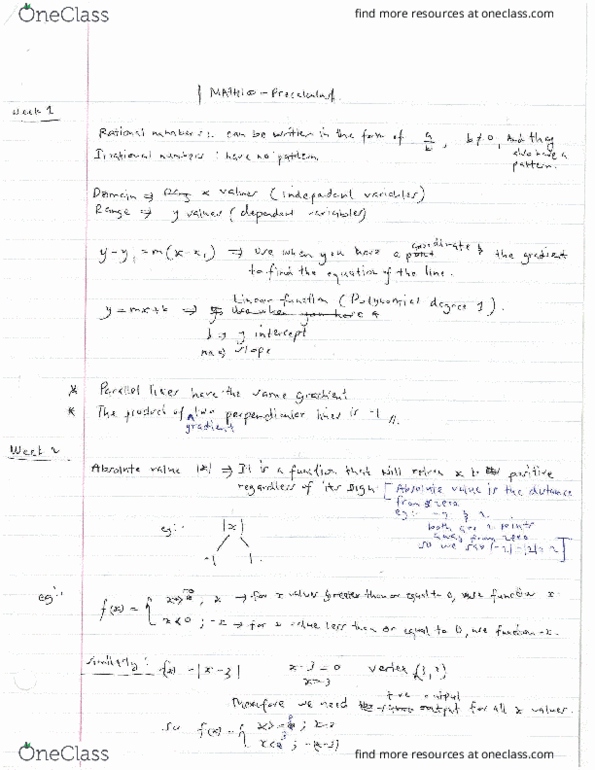 OneClass
find more resources at oneclass.com
MATH100 - Precalculus
Week 1
Rational numbers: can be written in the form of a/b, b≠0, and they also have a pattern.
Irrational numbers: have no pattern.
Domain ⇒ x values (independent variables)
Range ⇒ y values (dependent variables)
y-y₁ = m(x-x₁) ⇒ use when you have a coordinate & the gradient
to find the equation of the line.
y = mx+b ⇒ Linear function (Polynomial degree 1).
b ⇒ y intercept
m ⇒ slope
* Parallel lines have the same gradient
* The product of two gradient perpendicular lines is -1 //.
Week 2
Absolute value |x| ⇒ It is a function that will return x to positive
regardless of its sign. [Absolute value is the distance
from zero
eg:- -2 & 2.
both are 2 points
away from zero
so we say |-2| = |2| = 2]
eg:- |x|
-1 1
eg:- f(x) = { x≥0, x → for x values greater than or equal to 0, use function x.
x<0; -x → for x value less than or equal to 0, use function -x.
similarly: f(x) = |x-3| x-3=0 vertex
x=3
Therefore we need +ve output for all x values.
so f(x) = { x≥3; x-3
x<3; -(x-3)
OneClass
find more resources at oneclass.com